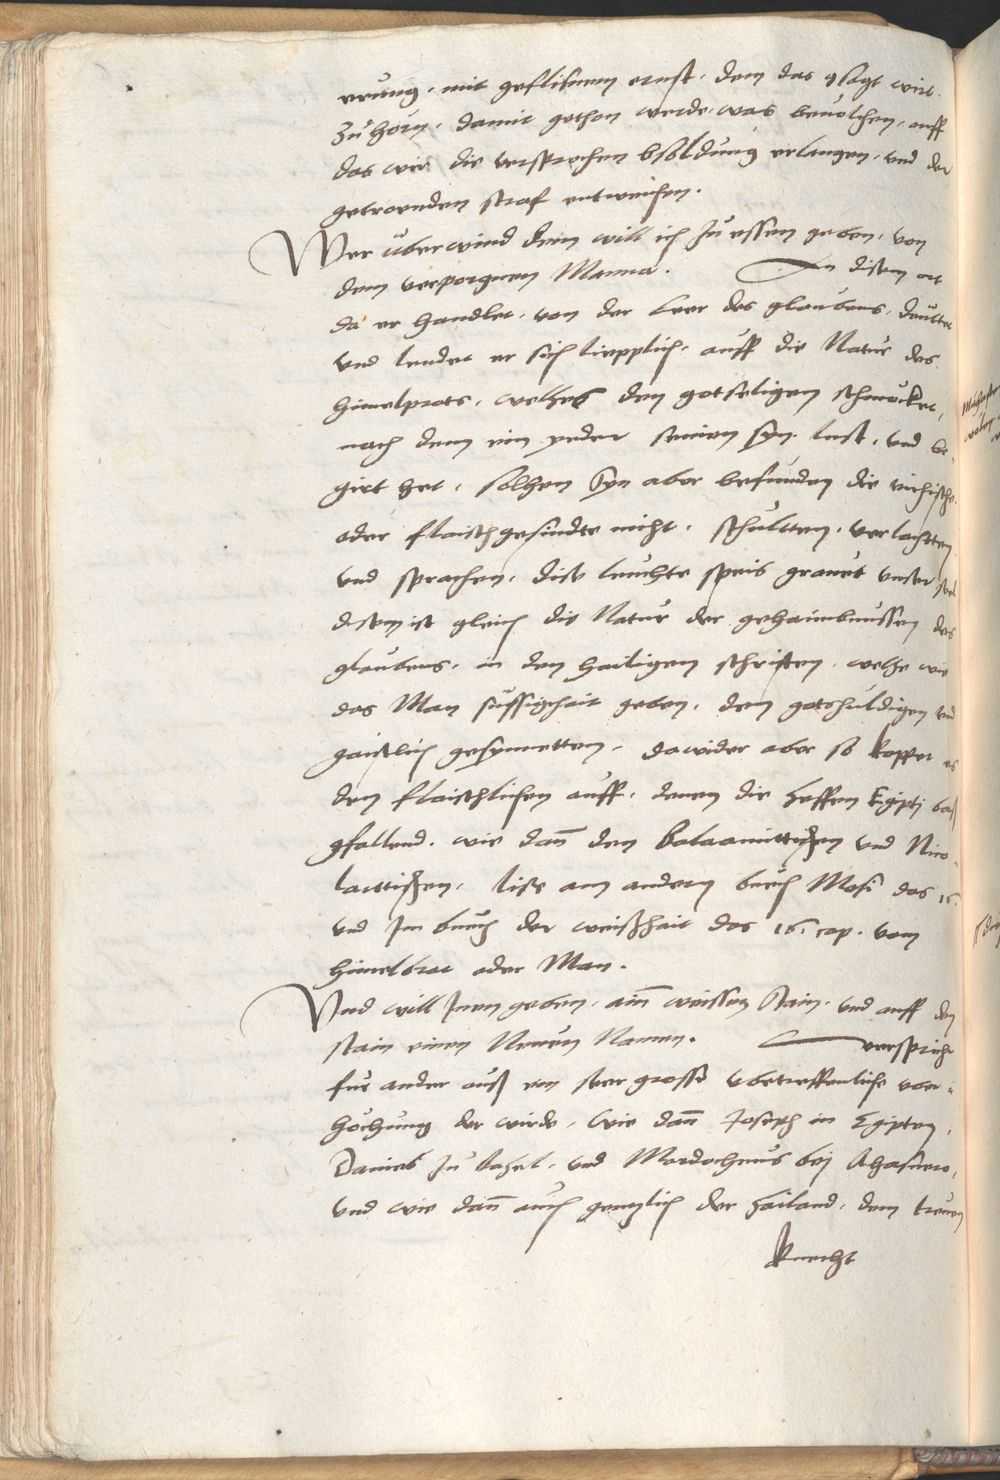 erung, mit geflisnem ernst, dem das gsagt wirt
zu hörn, damit gethon werde, was bevolhen, auff
das wir die versprochen bsoldung erlangen, und der
getroenden straf entweichen.
Wer überwind dem will ich zu essen geben, von
dem verporgnen Manna. In disem ort
da er handlet, von der leer des glaubens, deuttet
und lendet er sich liepplich, auff die Natur des
himelprots, welhes den gotseligen schmecket,
nach dem ein yeder seinen syn, lust, und be-
girt het, solhen syn aber befunden die vichische
oder flaischgesindte nicht, schultten, verlachtten
und sprachen, dise leuchte speis grauet unser seel
disem ist gleich die Natur der gehaimbnussen des
glaubens, in den hailigen schriften, welhe wie
das Man süssigkait geben, dem gotshuldigen und
gaistlich gesynnetten, dawider aber so kopper es
den flaischlichen auff, denen die heffen Egipti bas
gfallend, wie dan den Balaamittischen und Nico-
laittischen, lise am andern buech Mosi das 16.
und Im buech der weißhait das 16. cap. vom
himelbrot oder Man.
Und will Inen geben, ain weissen stain, und auff den
stain einen Neuen Namen. verspricht
für ander auß ein seer grosse ubertreffenliche ver-
höchung der wirde, wie dan Joseph in Egipten,
Daniel zu Babel, und Mardocheus bej Ahasuero,
und wie dan auch gentzlich der hailand, dem treuen
knecht